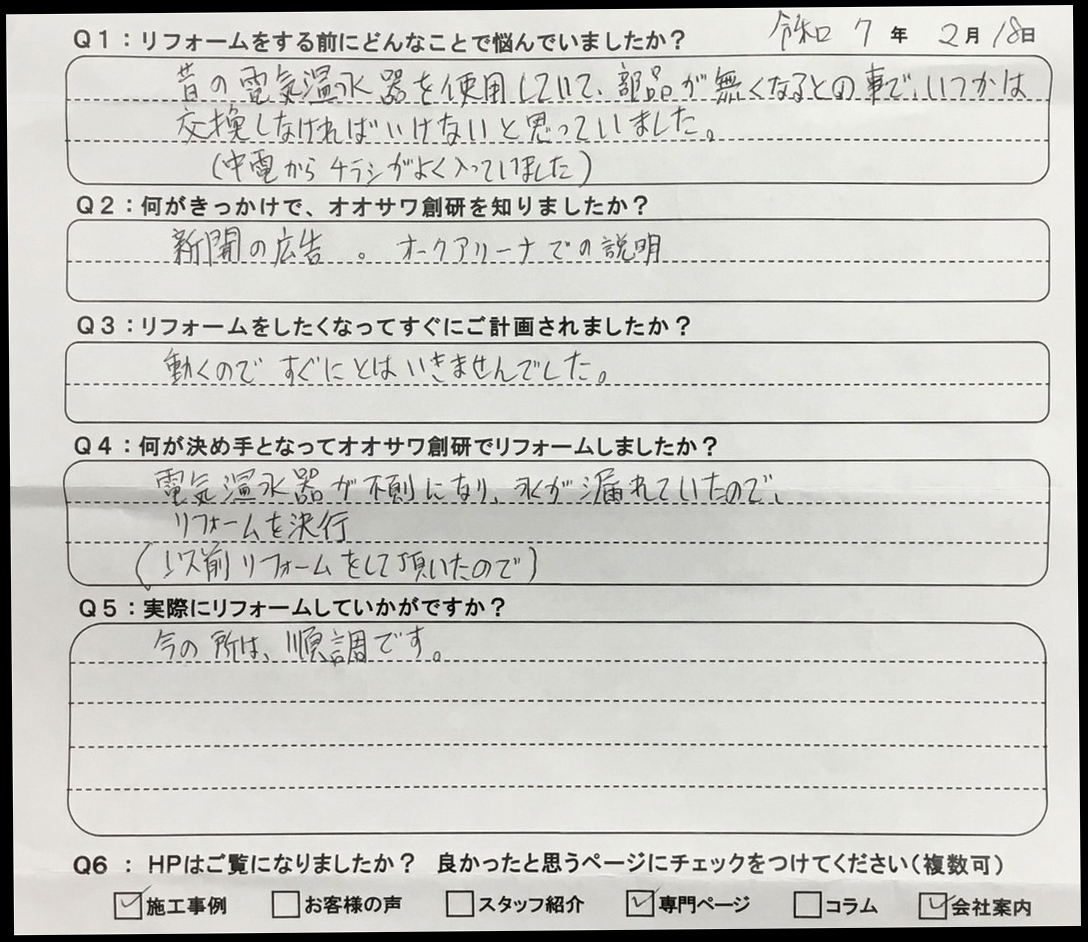 Q1：リフォームをする前にどんなことで悩んでいましたか？ 令和 7 年 2月 18日
昔の電気温水器を使用していて、部品が無くなるとの事で、いつかは
交換しなければいけないと思っていました。
（中電からチラシがよく入っていました）
Q2：何がきっかけで、オオサワ創研を知りましたか？
新聞の広告 。 オークアリーナでの説明
Q3：リフォームをしたくなってすぐにご計画されましたか？
動くので すぐにとはいきませんでした。
Q4：何が決め手となってオオサワ創研でリフォームしましたか？
電気温水器が不調になり、水が漏れていたので、
リフォームを決行
（以前リフォームをして頂いたので）
Q5：実際にリフォームしていかがですか？
今の所は、順調です。
Q6 ： HPはご覧になりましたか？ 良かったと思うページにチェックをつけてください（複数可）
☑施工事例 □お客様の声 □スタッフ紹介 ☑専門ページ □コラム ☑会社案内